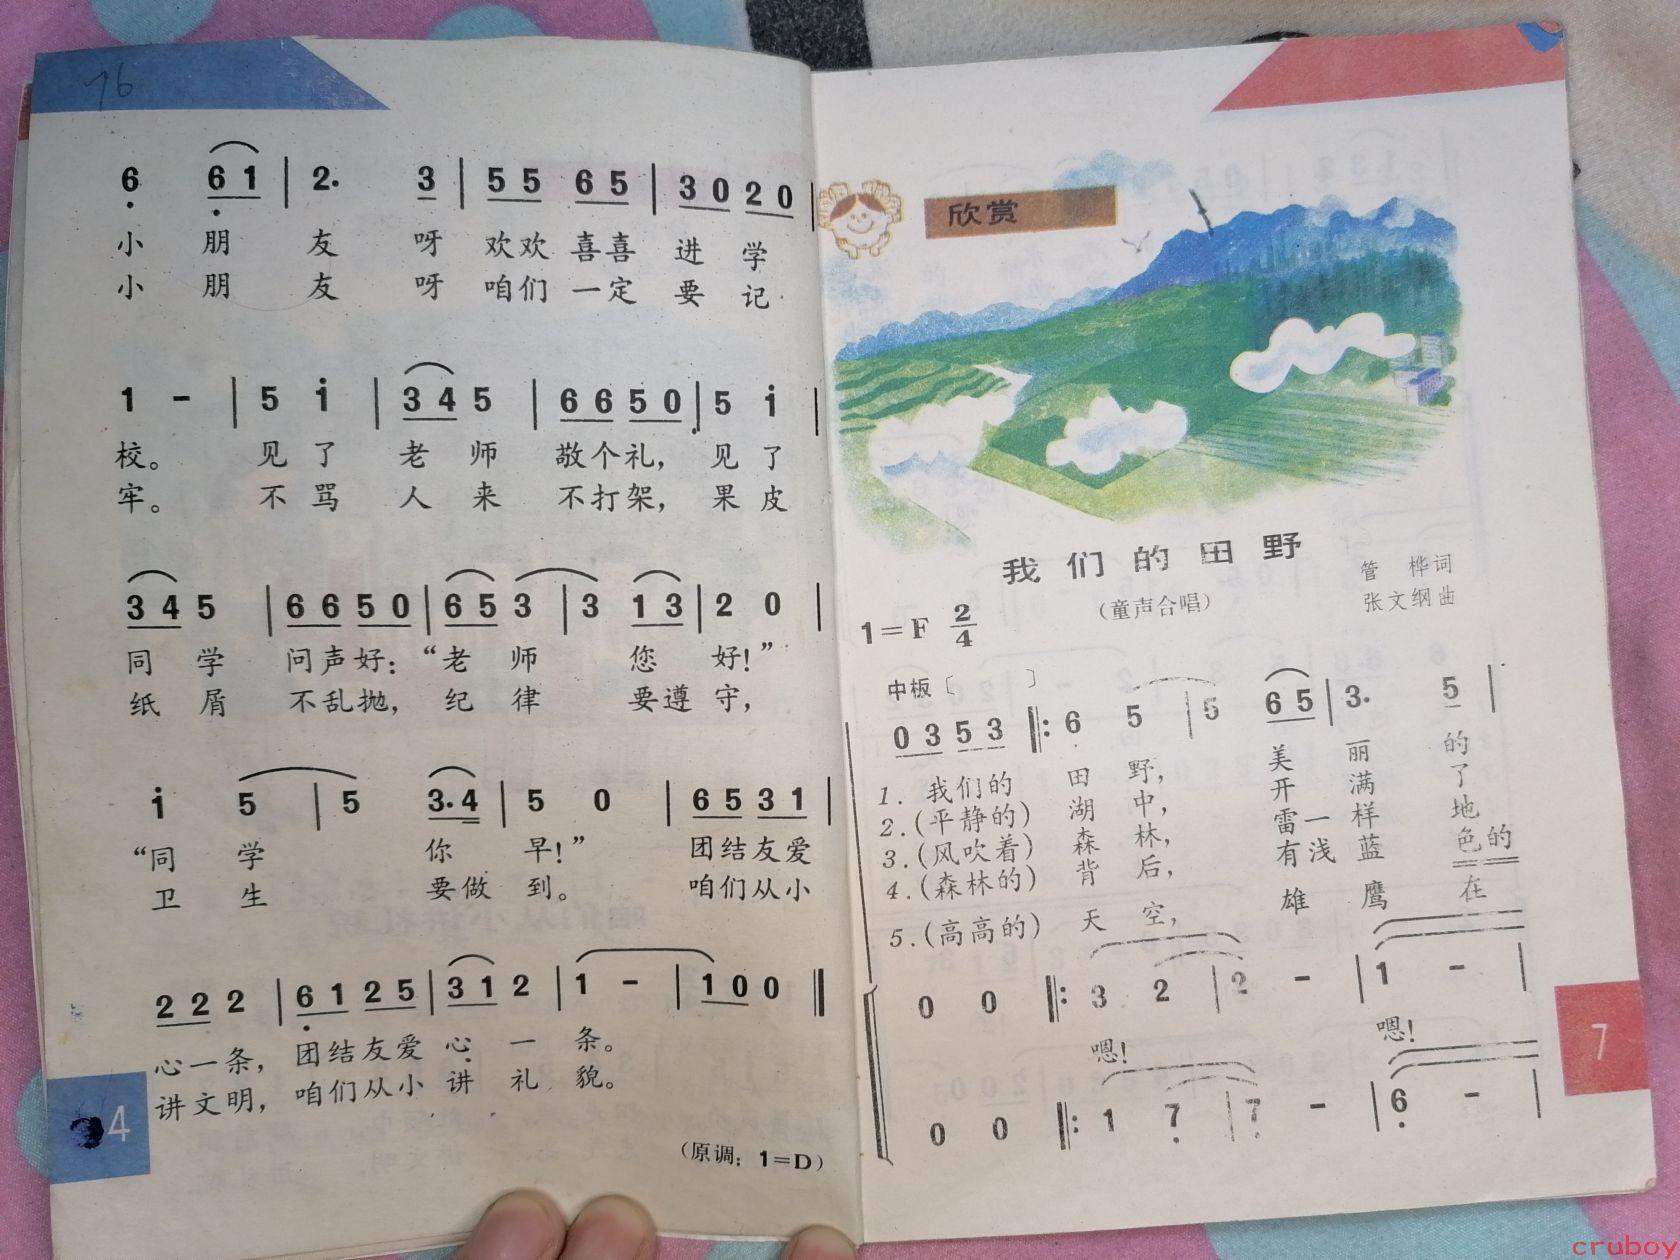 76
6 6 1 | 2· 3 | 5 5 6 5 | 3 0 2 0 |
小 朋 友 呀 欢欢 喜喜 进 学
小 朋 友 呀 咱们 一定 要 记
1 - | 5 i | 3 4 5 | 6 6 5 0 | 5 i |
校。 见 了 老 师 敬个礼, 见 了
牢。 不 骂 人 来 不打架, 果 皮
3 4 5 | 6 6 5 0 | 6 5 3 | 3 1 3 | 2 0 |
同 学 问声好:“老 师 您 好!”
纸 屑 不乱抛, 纪 律 要遵 守,
i 5 | 5 3·4 | 5 0 | 6 5 3 1 |
“同 学 你 早!” 团结友爱
卫 生 要做 到。 咱们从小
2 2 2 | 6 1 2 5 | 3 1 2 | 1 - | 1 0 0 ‖
心一条, 团结友爱 心 一 条。
讲文明, 咱们从小 讲 礼 貌。
4
(原调: 1=D)
欣赏
我们的田野
(童声合唱)
管 桦词
张文纲曲
1=F 2/4
中板〔 〕
0 3 5 3 ‖: 6 5 | 5 6 5 | 3· 5 |
1. 我们的 田 野, 美 丽 的
2.(平静的) 湖 中, 开 满 了
3.(风吹着) 森 林, 雷一 样 地
4.(森林的) 背 后, 有浅 蓝 色的
5.(高高的) 天 空, 雄 鹰 在
0 0 ‖: 3 2 | 2 - | 1 - |
嗯! 嗯!
0 0 ‖: 1 7 | 7 - | 6 - |
7
cruboy